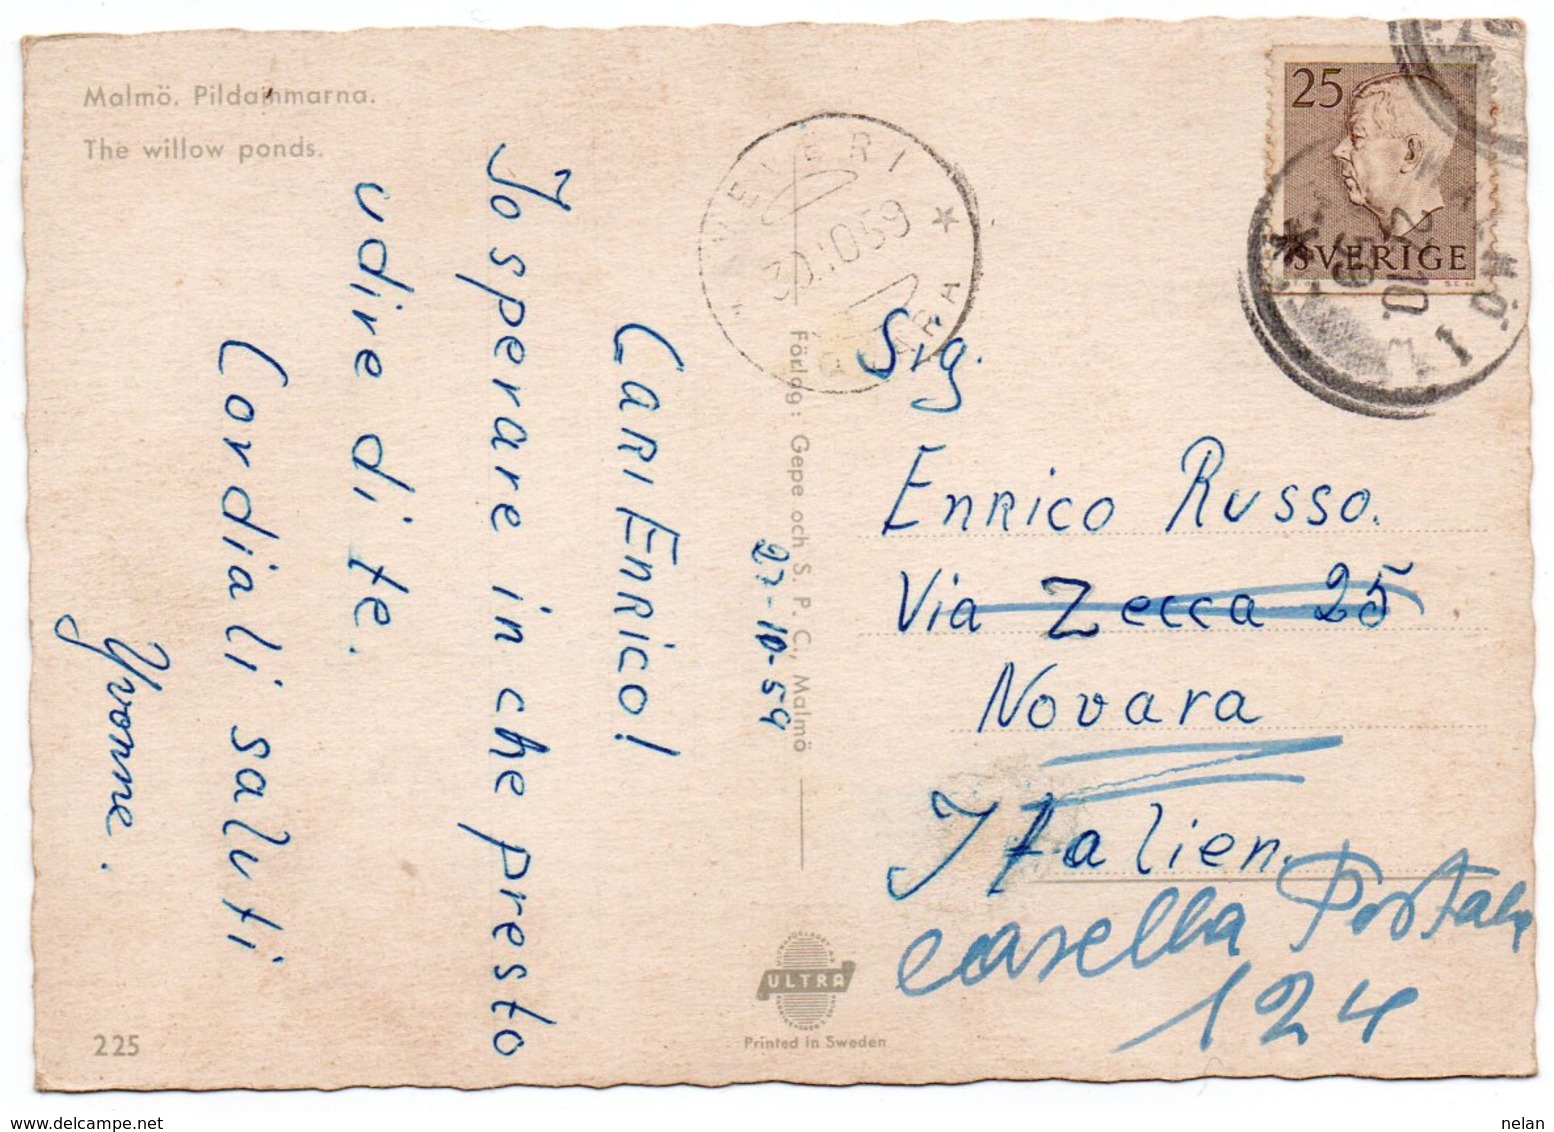 Malmö. Pildammarna.
The willow ponds.
CARI ENRICO!
Io sperare in che presto
udire di te.
Cordiali saluti
Yvonne.
27-10-59
Förlag: Gepe och S. P. C., Malmö
30.10.59
25
SVERIGE
Sig.
Enrico Russo.
Via Zecca 25
Novara
Italien.
casella Postale
124
ULTRA
Printed in Sweden
225
nelan